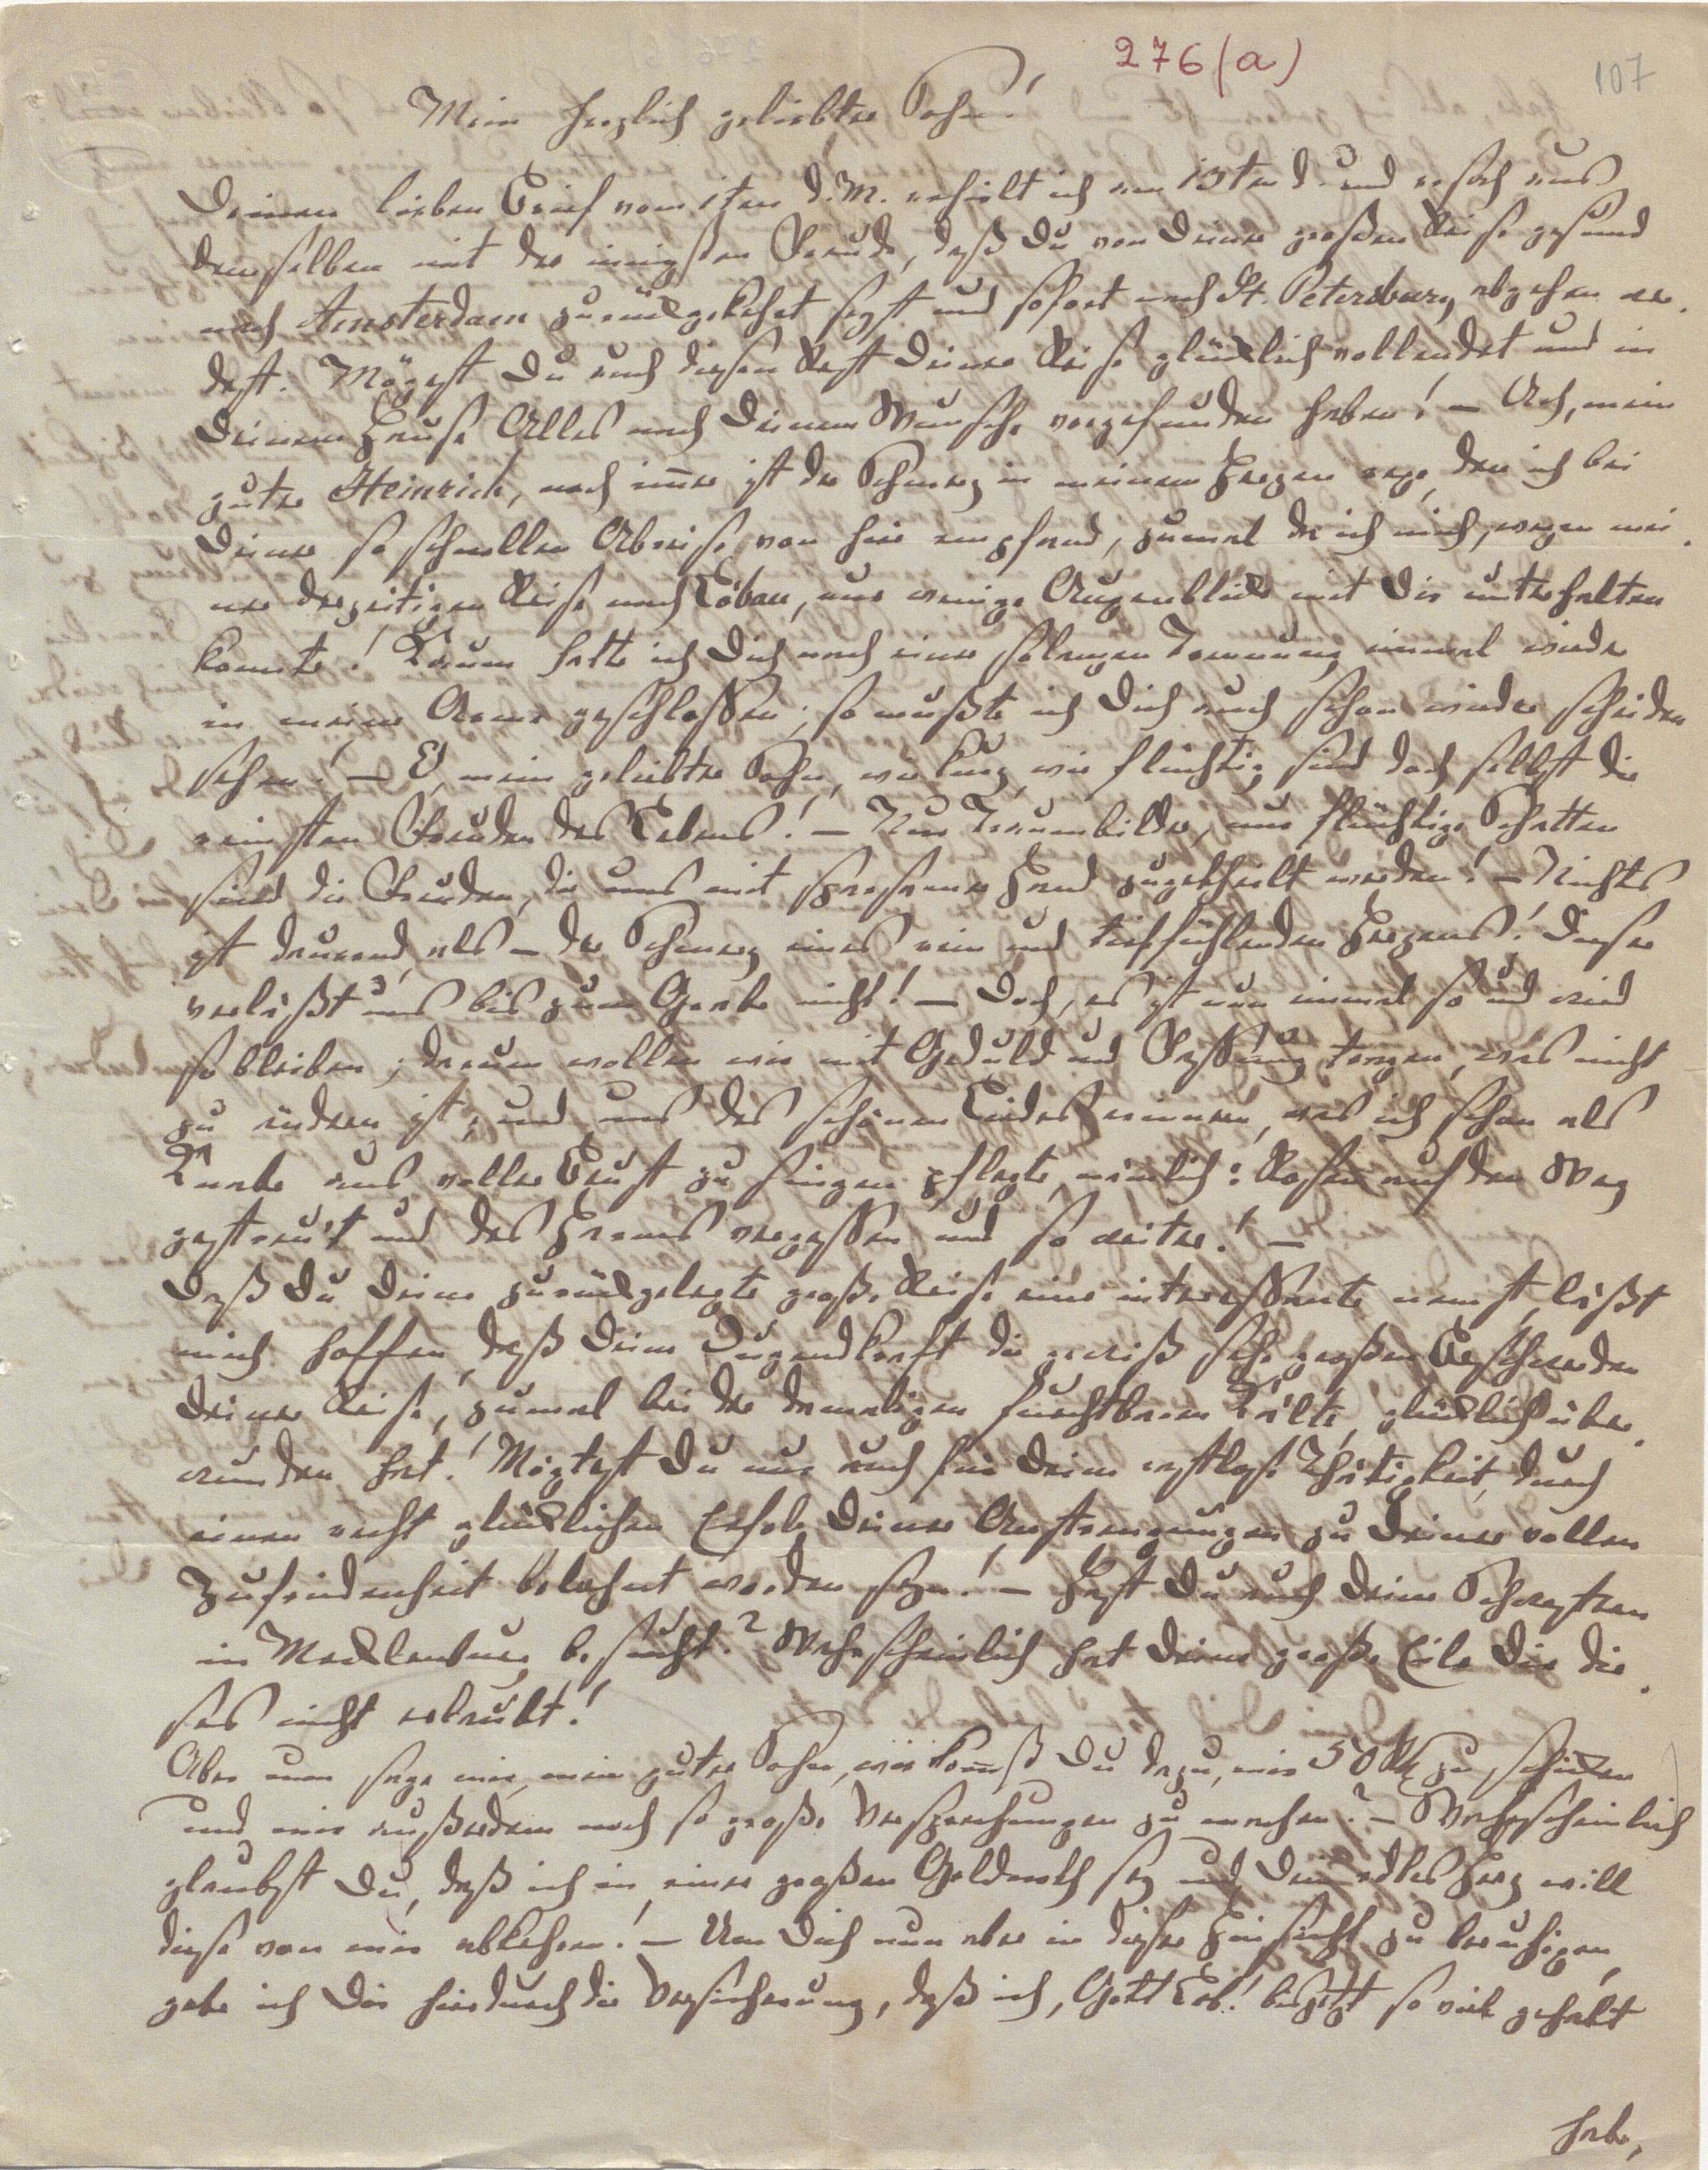 276(a)
107
Mein herzlich geliebter Sohn!
Deinen lieben Brief vom 1ten d. M. erhielt ich am 13ten d. und ersah aus
demselben mit der innigsten Freude, daß Du von Deiner großen Reise gesund
nach Amsterdam zurückgekehrt seyst und sofort nach St. Petersburg abgehen wer-
dest. Mögest Du auch diesen Rest Deiner Reise glücklich vollendet und in
Deinem Hause Alles nach Deinem Wunsche vorgefunden haben! – Ach, mein
guter Heinrich, noch im̅er ist der Schmerz in meinem Herzen rege, den ich bei
Deiner so schnellen Abreise von hier empfand, zumal da ich mich, wegen mei-
ner derzeitigen Reise nach Löbau, nur wenige Augenblicke mit Dir unterhalten
konnte! Kaum hatte ich Dich nach einer so langen Trennung einmal wieder
in meine Arme geschlossen; so mußte ich Dich auch schon wieder scheiden
sehen! – O, mein geliebter Sohn, wie kurz, wie flüchtig sind doch selbst die
reinsten Freuden des Lebens! – Nur Traumbilder, nur flüchtige Schatten
sind die Freuden, die uns mit sparsamer Hand zugetheilt werden! – Nichts
ist dauernd, als – der Schmerz eines rein und tieffühlenden Herzens! Dieser
verläßt uns bis zum Grabe nicht! – Doch, es ist nun einmal so und wird
so bleiben; darum wollen wir mit Geduld und Fassung tragen, was nicht
zu ändern ist, und uns des schönen Liedes erinnern, was ich schon als
Knabe aus voller Brust zu singen pflegte, nämlich: Rosen auf den Weg
gestreu't und des Harms vergessen und so weiter! –
Daß Du Deine zurückgelegte große Reise eine interessante nennst, läßt
mich hoffen, daß Deine Jugendkraft die gewiß sehr großen Beschwerden
Deiner Reise, zumal bei der damaligen furchtbaren Kälte, glücklich über-
wunden hat! Mögtest Du nur auch für Deine rastlose Thätigkeit, durch
einen recht glücklichen Erfolg Deiner Anstrengungen zu Deiner vollen
Zufriedenheit belohnt worden seyn! – Hast Du auch Deine Schwestern
in Mecklenburg besucht? Wahrscheinlich hat Deine große Eile Dir die-
ses nicht erlaubt!
Aber nun sage mir, mein guter Sohn, wie kom̅st Du dazu, mir 50 zu schicken
und mir außerdem noch so große Versprechungen zu machen? – Wahrscheinlich
glaubst Du, daß ich in einer großen Geldnoth sey und Dein edles Herz will
diese von mir abkehren! – Um Dich nun aber in dieser Hinsicht zu beruhigen,
gebe ich Dir hierdurch die Versicherung, daß ich, Gott Lob! bis jetzt so viel gehabt
habe,